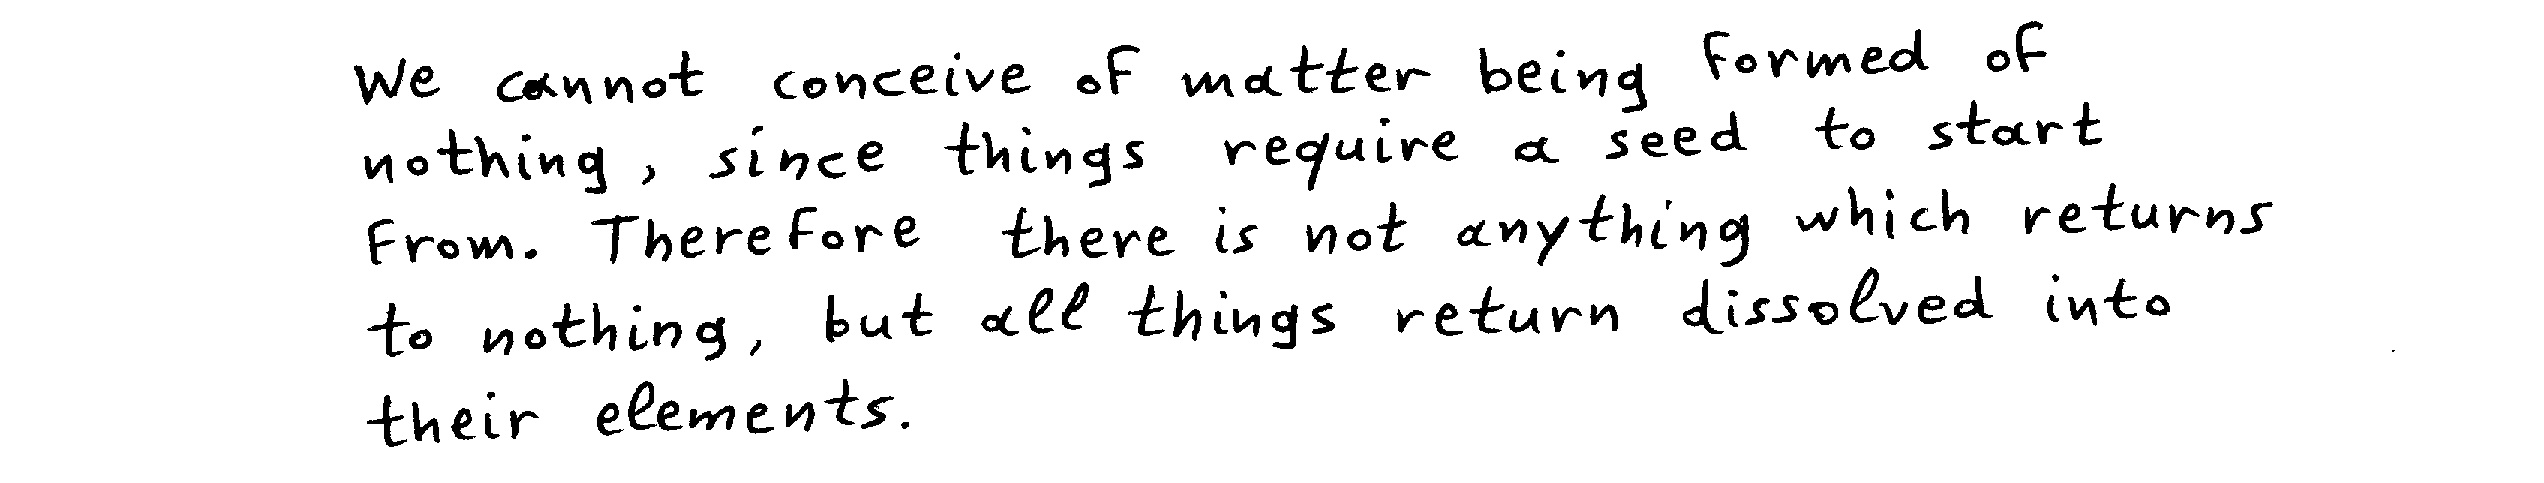 We cannot conceive of matter being formed of
nothing, since things require a seed to start
from. Therefore there is not anything which returns
to nothing, but all things return dissolved into
their elements.